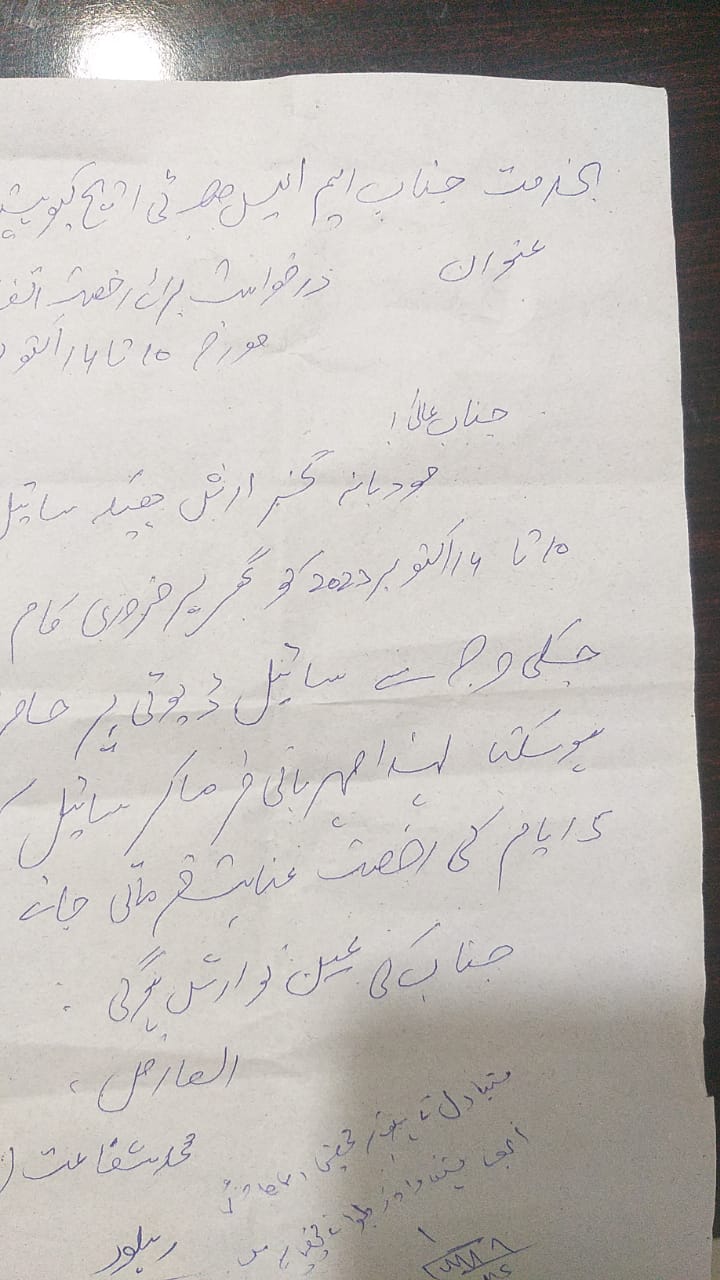 بخدمت جناب ایم ایس صاحب ٹی ایچ کیو
عنوان
درخواست برائے رخصت
مورخہ 10 تا 14 اکتوبر
جناب عالی!
مودبانہ گزارش ہیکہ سائیل
10 تا 14 اکتوبر 2023 کو گھر پر ضروری کام
جسکی وجہ سے سائیل ڈیوٹی پر
ہو سکتا لہذا مہربانی فرما کر سائیل
5 ایام کی رخصت عنایت فرمائی جائے
جناب کی عین نوازش ہوگی
العارض
محمد شفاعت
متبادل